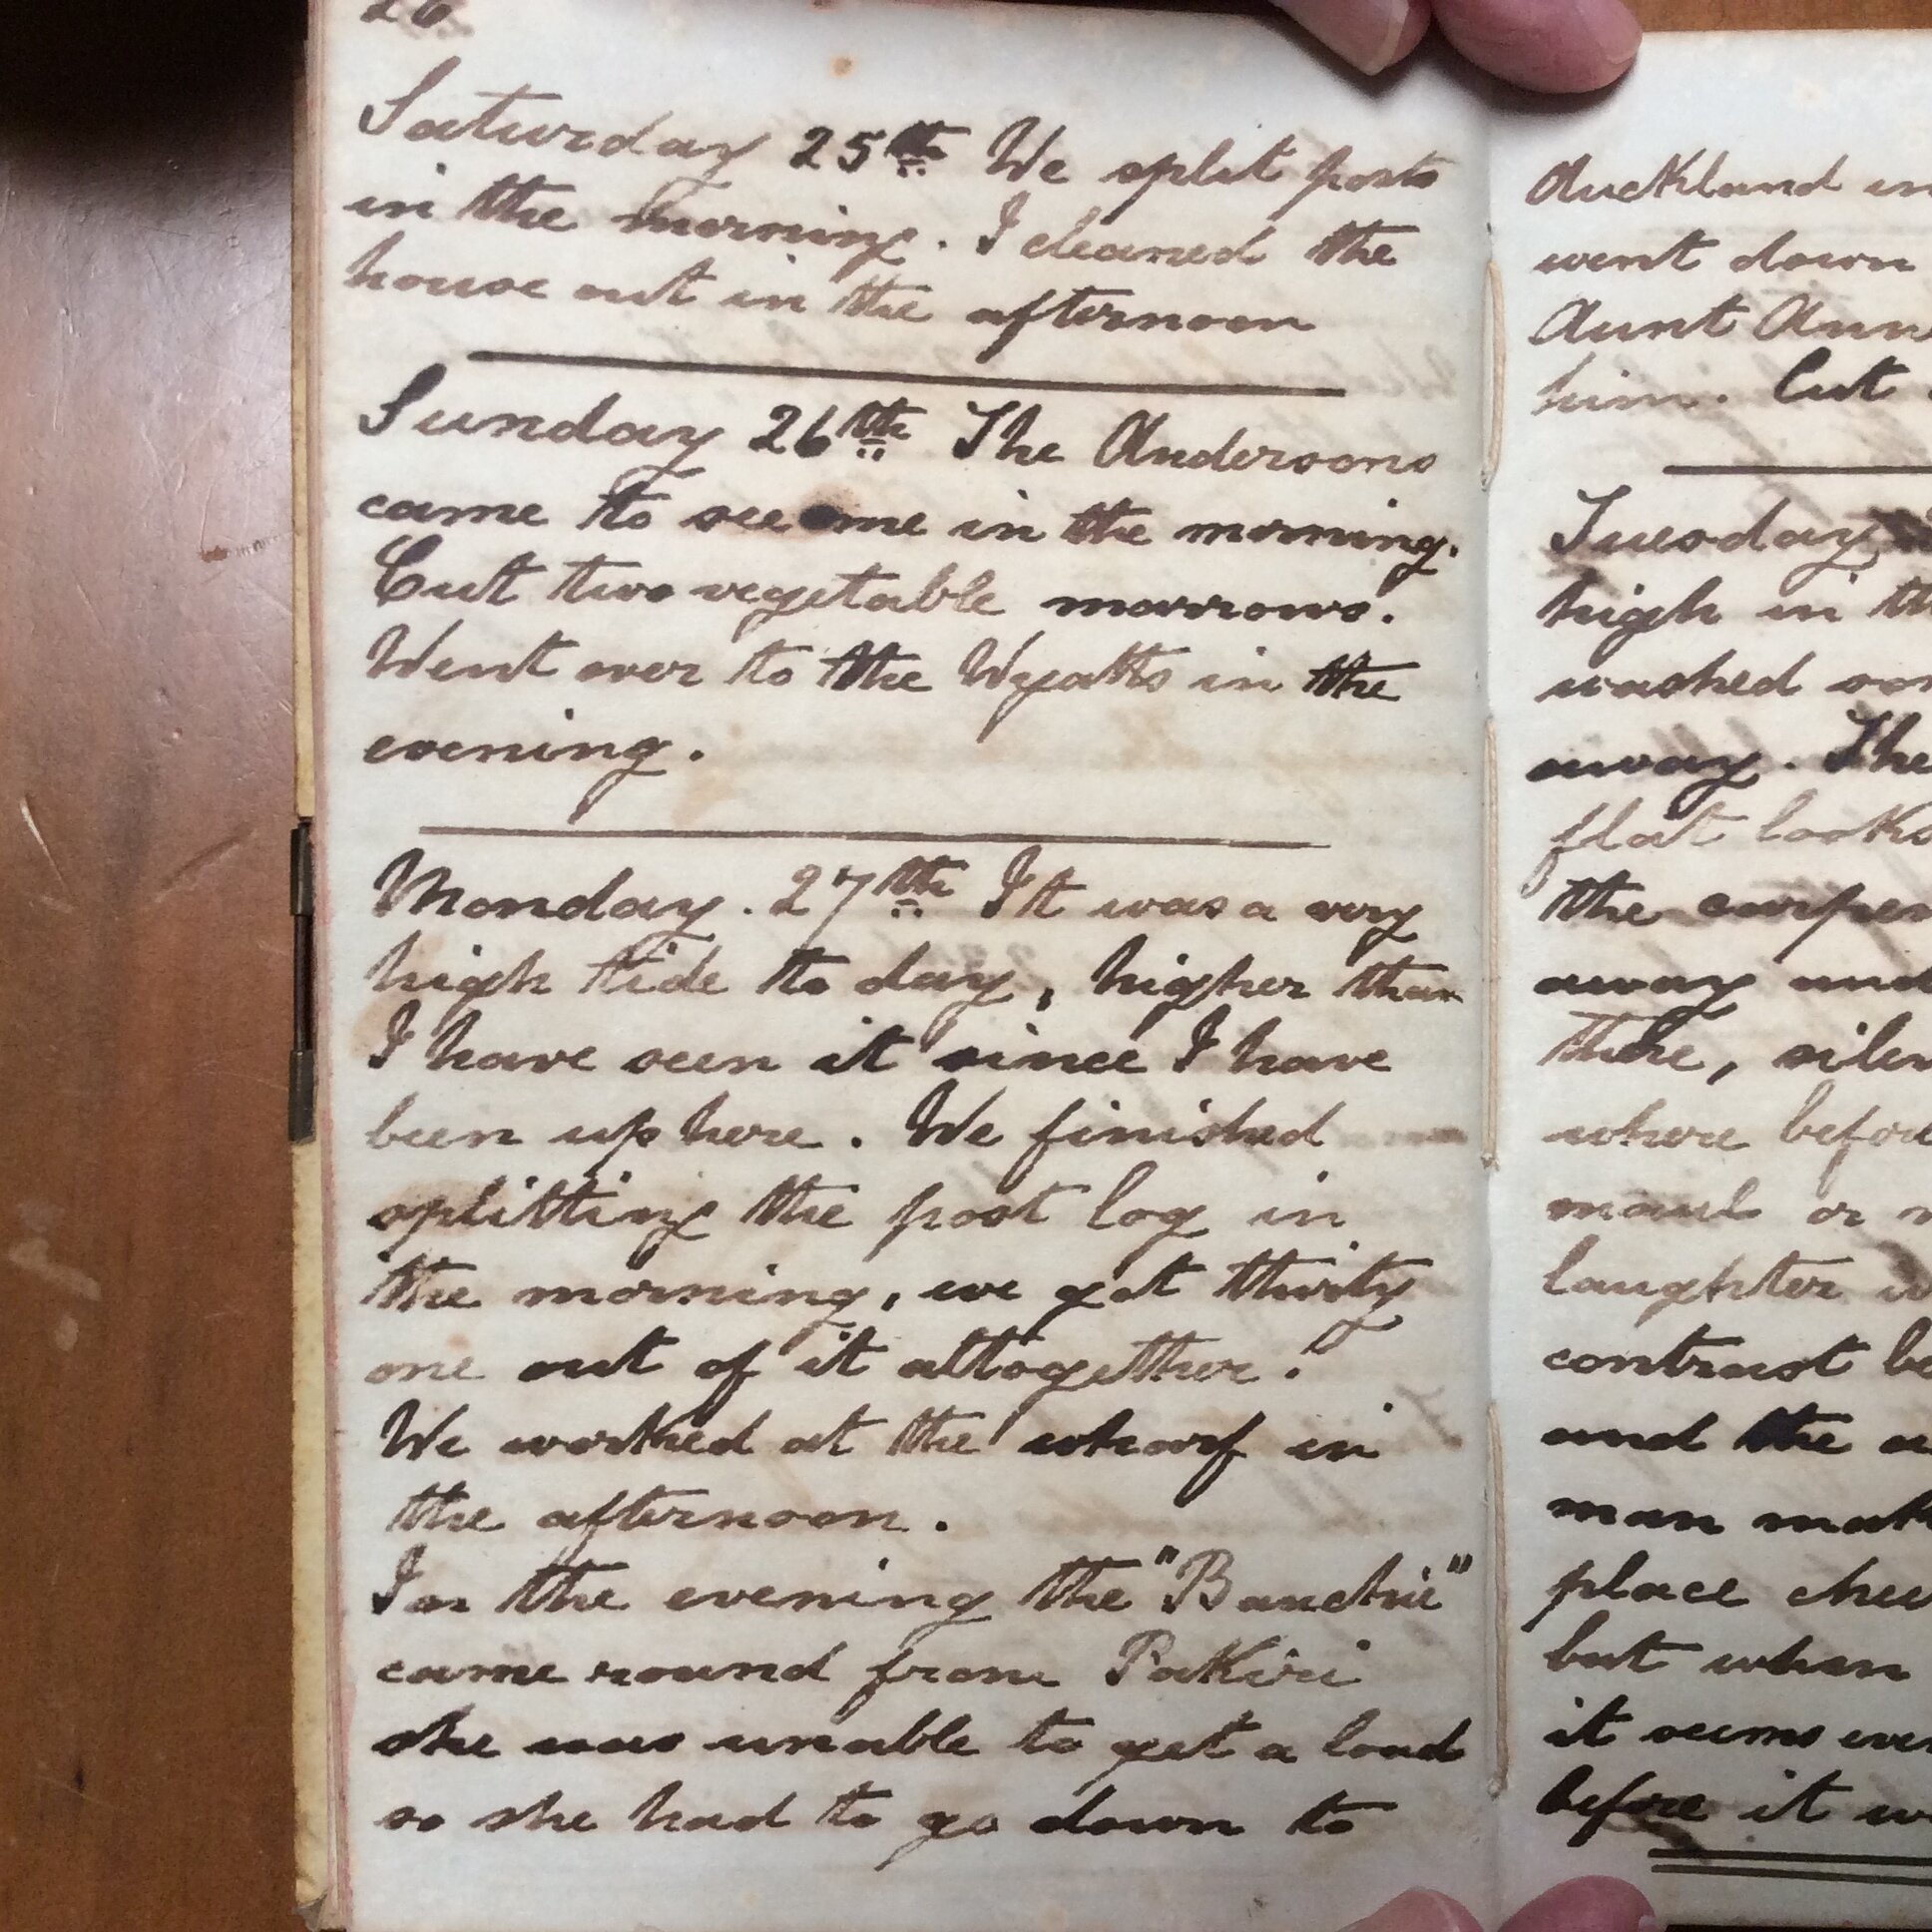 26
Saturday 25th We split posts
in the morning. I cleaned the
house out in the afternoon
Sunday 26th The Andersons
came to see me in the morning.
Cut two vegetable marrows.
Went over to the Wyatts in the
evening.
Monday. 27th It was a very
high tide to day, higher than
I have seen it since I have
been up here. We finished
splitting the post log in
the morning, we got thirty
one out of it altogether.
We worked at the wharf in
the afternoon.
In the evening the "Banchie"
came round from Pakiri
she was unable to get a load
so she had to go down to
Auckland in
went down
Aunt Ann
him. Cut
Tuesday
high in th
washed som
away. The
flat looks
the carpen
away and
there, silen
where before
maul or
laughter w
contrast be
and the
man mak
place chee
but when
it seems ever
before it w